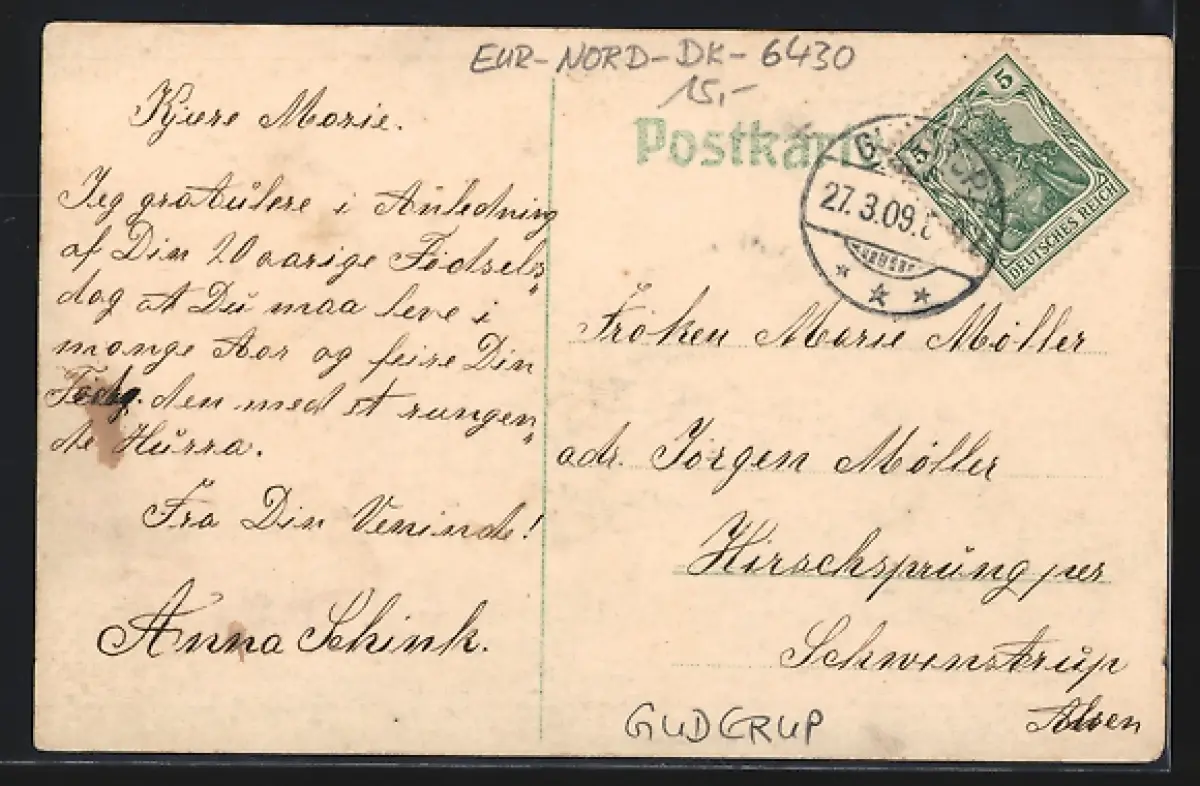 EUR-NORD-DK-6430
15,-
Kjære Marie.
Jeg gratulere i Anledning
af Din 20 aarige Födsels„
dag at Du maa leve i
mange Aar og feire Din
Födsg. den med et rungen„
de Hurra.
Fra Din Veninde!
Anna Schink.
Postkarte
27.3.09.
5
5
DEUTSCHES REICH
Fröken Marie Møller
adr. Jörgen Møller
Hirschsprung per
Schwenstrup
Alsen
GUDERUP